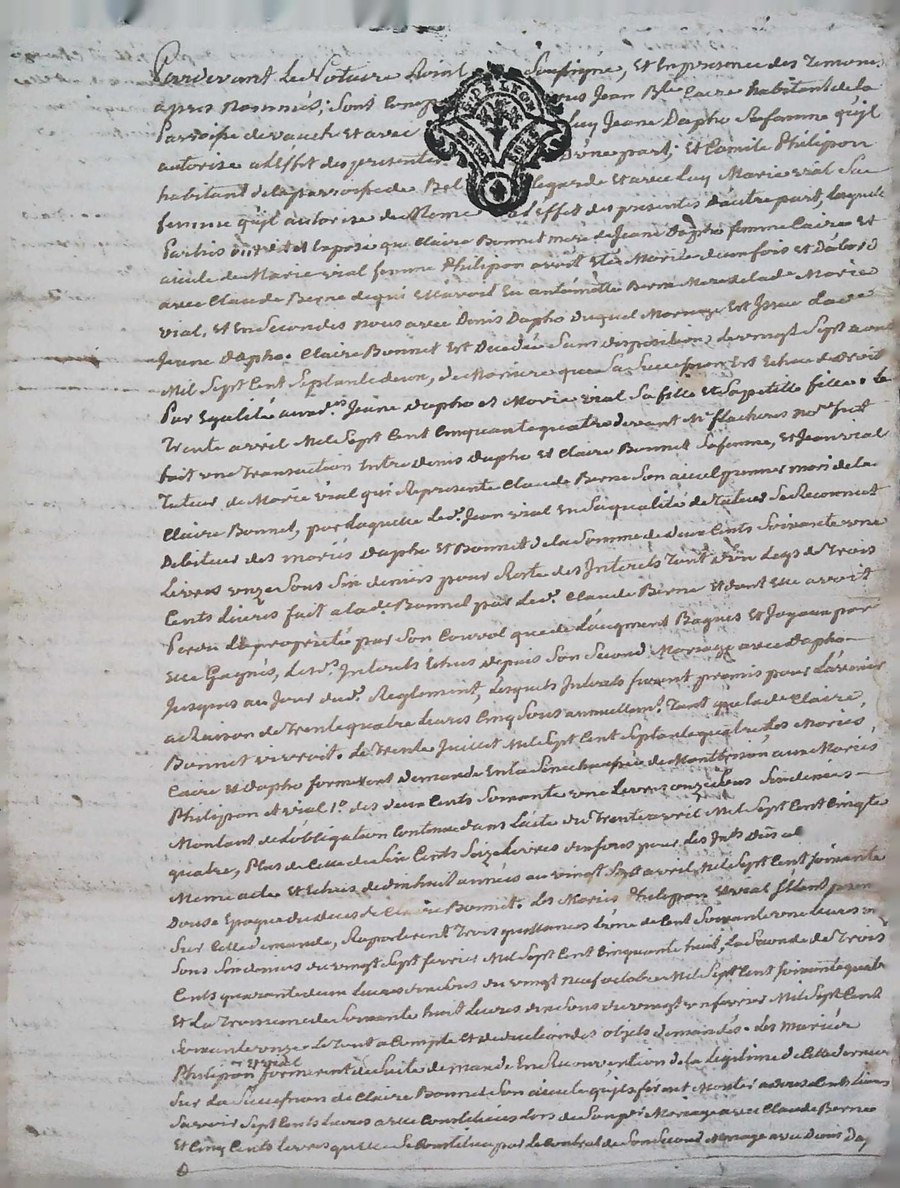 Pardevant Le Notaire Roial Soussigné, Et En presence des Temoins
apres Nommés; Sont Comp Jean Bte Caire habitant de la
G. DE LYON
Parroisse de vauch Et avec luy Jeane Dapho Sa femme qu'il
DEUX SOLS
autorise a L'Effet des presentes D'une part; Et Camile Philipon
habitant de la parroisse de Bel legarde Et avec Luy Marie vial Sa
femme qu'il autorise de Meme a l'effet des presentes d'autre part, Laquelle
Parties ont dit Et Exposé que Claire Bonnet mere de Jeane Dapho femme Caire Et
aieule de Marie vial femme Philipon avoit Eté Mariée deux fois Et D'abord
avec Claude Berne de qui Elle avoit Eu antoinette Berne Mere de lad. Marie
vial, Et En Secondes Noces avec Denis Dapho duquel Mariage Est Issue Lade
Jeane Dapho. Claire Bonnet Est Decedée Sans disposition Le vingt Sept avril
Mil Sept Cent Soixante douze, de Maniere que Sa Succession Est Echue de Droit
Par Egalité auxd. Jeane dapho Et Marie vial Sa fille Et Sa petite fille. Le
Trente avril Mil Sept Cent Cinquante quatre devant Me flacheras Nore fut
fait une Transaction Entre Denis dapho Et Claire Bonnet Sa femme, Et Jean vial
Tuteur de Marie vial qui Represente Claude Berne Son aieul premier mari de la
Claire Bonnet, par laquelle Led. Jean vial En Sa qualité de Tuteur Se Reconnut
Debiteur des mariés dapho Et Bonnet de la Somme de deux Cents Soixante une
Livres onze Sous Six deniers pour Reste des Interets Tant d'un Legs de Trois
Cents Livres fait a lad. Bonnet par Led. Claude Berne Et dont Elle avoit
Perdu La propriété par Son Convol que de L'augment Bagues Et Joyaux par
Elle Gagnés, Lesd. Interets Echus depuis Son Second Mariage avec Dapho
Jusques au Jour dud. Reglement, Lesquels Interets furent promis pour L'avenir
a Raison de Trente quatre Livres Cinq Sous annuellemt. Tant que lad. Claire
Bonnet vivroit. Le Trente Juillet Mil Sept Cent Septante quatre Les Mariés
Caire Et Dapho formerent demande En la Senechaussée de Montbrison aux Mariés
Philipon Et vial 1o. des deux Cents Soixante une Livres onze Sous Six deniers
Montant de L'obligation Contenue dans L'acte du Trente avril Mil Sept Cent Cinquante
quatre, Plus de Celle de Six Cents Seize Livres dix Sous pour Les Ints. Dûs
Meme acte Et Echus de dixhuit années au vingt Sept avril Mil Sept Cent Soixante
Douze Epoque du deces de Claire Bonnet. Les Mariés Philipon Et vial
Sur Cette demande, Raporterent Trois quittances L'une de Cent Soixante une Livres
Sous Six deniers du vingt Sept fevrier Mil Sept Cent Cinquante huit, La Seconde de Trois
Cents quarante deux Livres dix Sous du vingt neuf octobre Mil Sept Cent Soixante quatre
Et La Troisieme de Soixante huit Livres dix Sous du vingt un fevrier Mil Sept Cent
Soixante onze Le Tout a Compte Et deduction des objets demandés. Les Mariés
Philipon Et vial formerent de Suite demande En Reconvention de la Legitime de Cette derniere
Sur La Succession de Claire Bonnet Son aieule qu'ils firent Monter a douze Cents Livres
Savoir Sept Cents Livres a Elle Constituées Lors de Son per Mariage avec Claude Berne
Et Cinq Cents Livres qu'elle Se Constitua par Le Contrat de Son Second Mariage avec Denis Dap